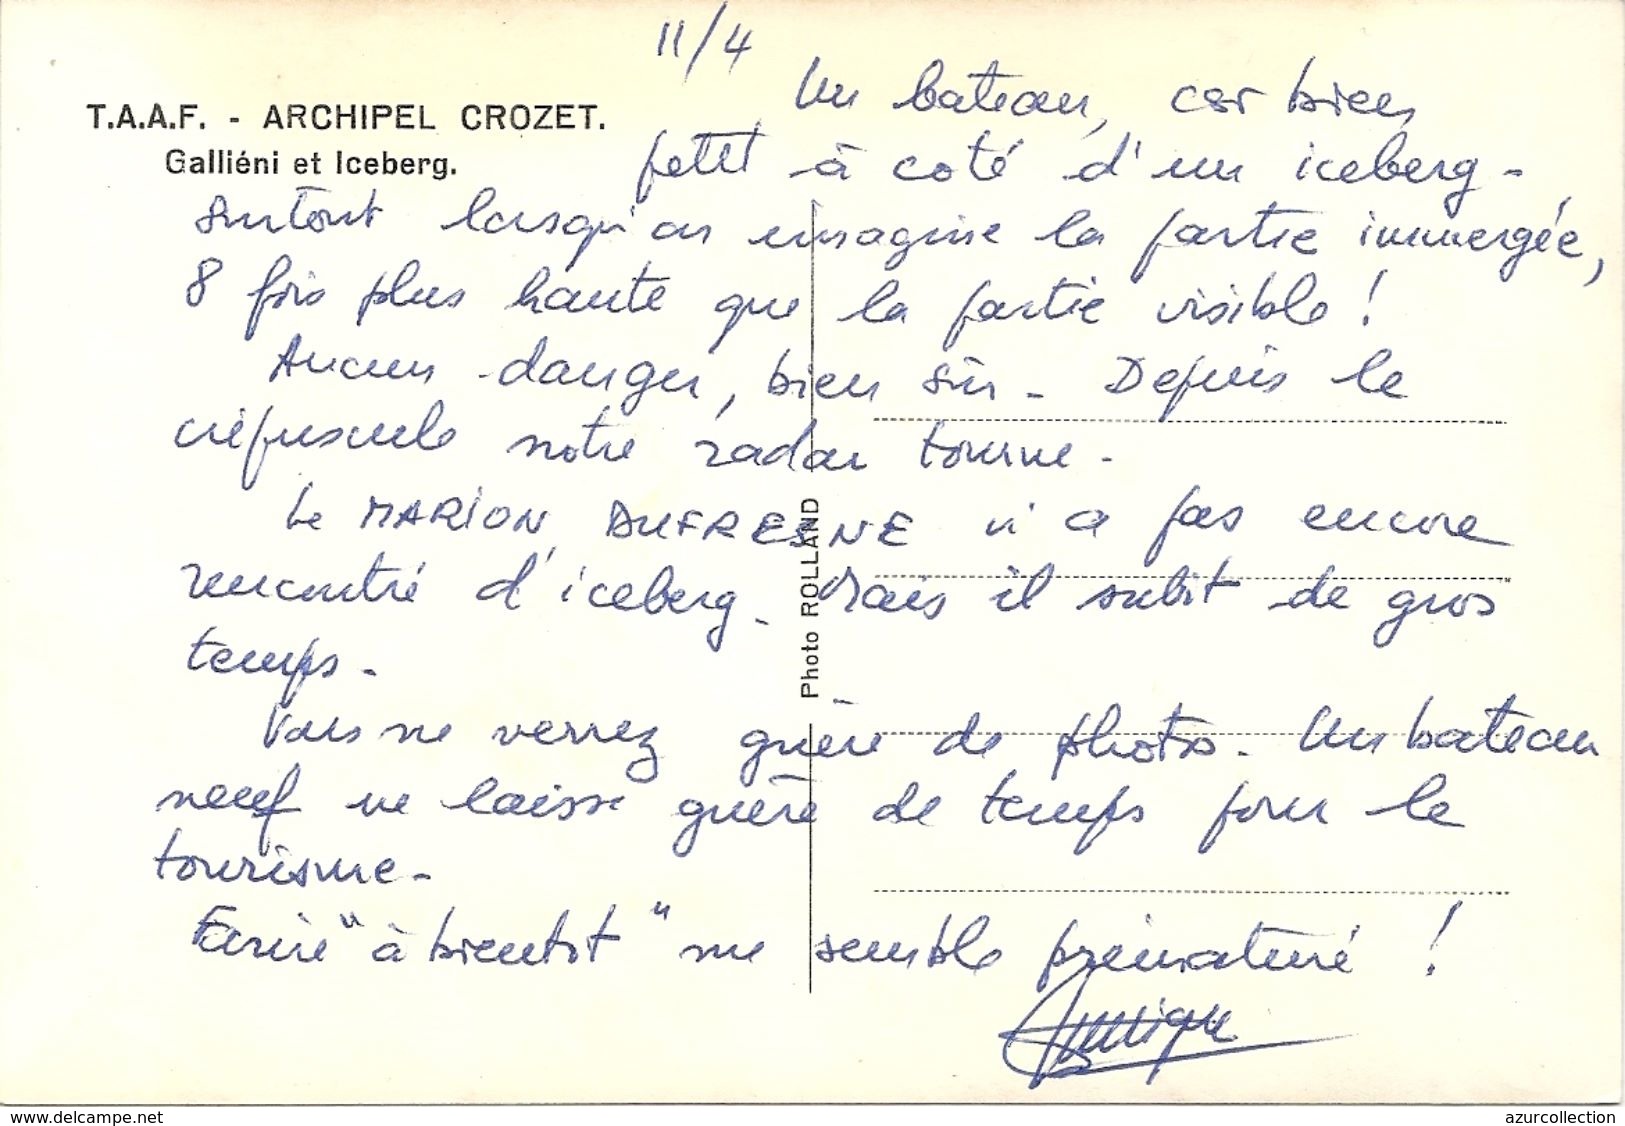 11/4
T.A.A.F. - ARCHIPEL CROZET.
Galliéni et Iceberg.
Un bateau, bien
petit à coté d'un iceberg -
surtout lorsqu'on imagine la partie immergée,
8 fois plus haute que la partie visible !
Aucun danger, bien sûr - Depuis le
crépuscule notre radar tourne -
Le MARION DUFRESNE n'a pas encore
rencontré d'iceberg - Mais il subit de gros
temps -
Vous ne verrez guère de photos - Un bateau
neuf ne laisse guère de temps pour le
tourisme -
Ecrire "à bientôt" me semble prématuré !
Photo ROLLAND
www.delcampe.net
azurcollection